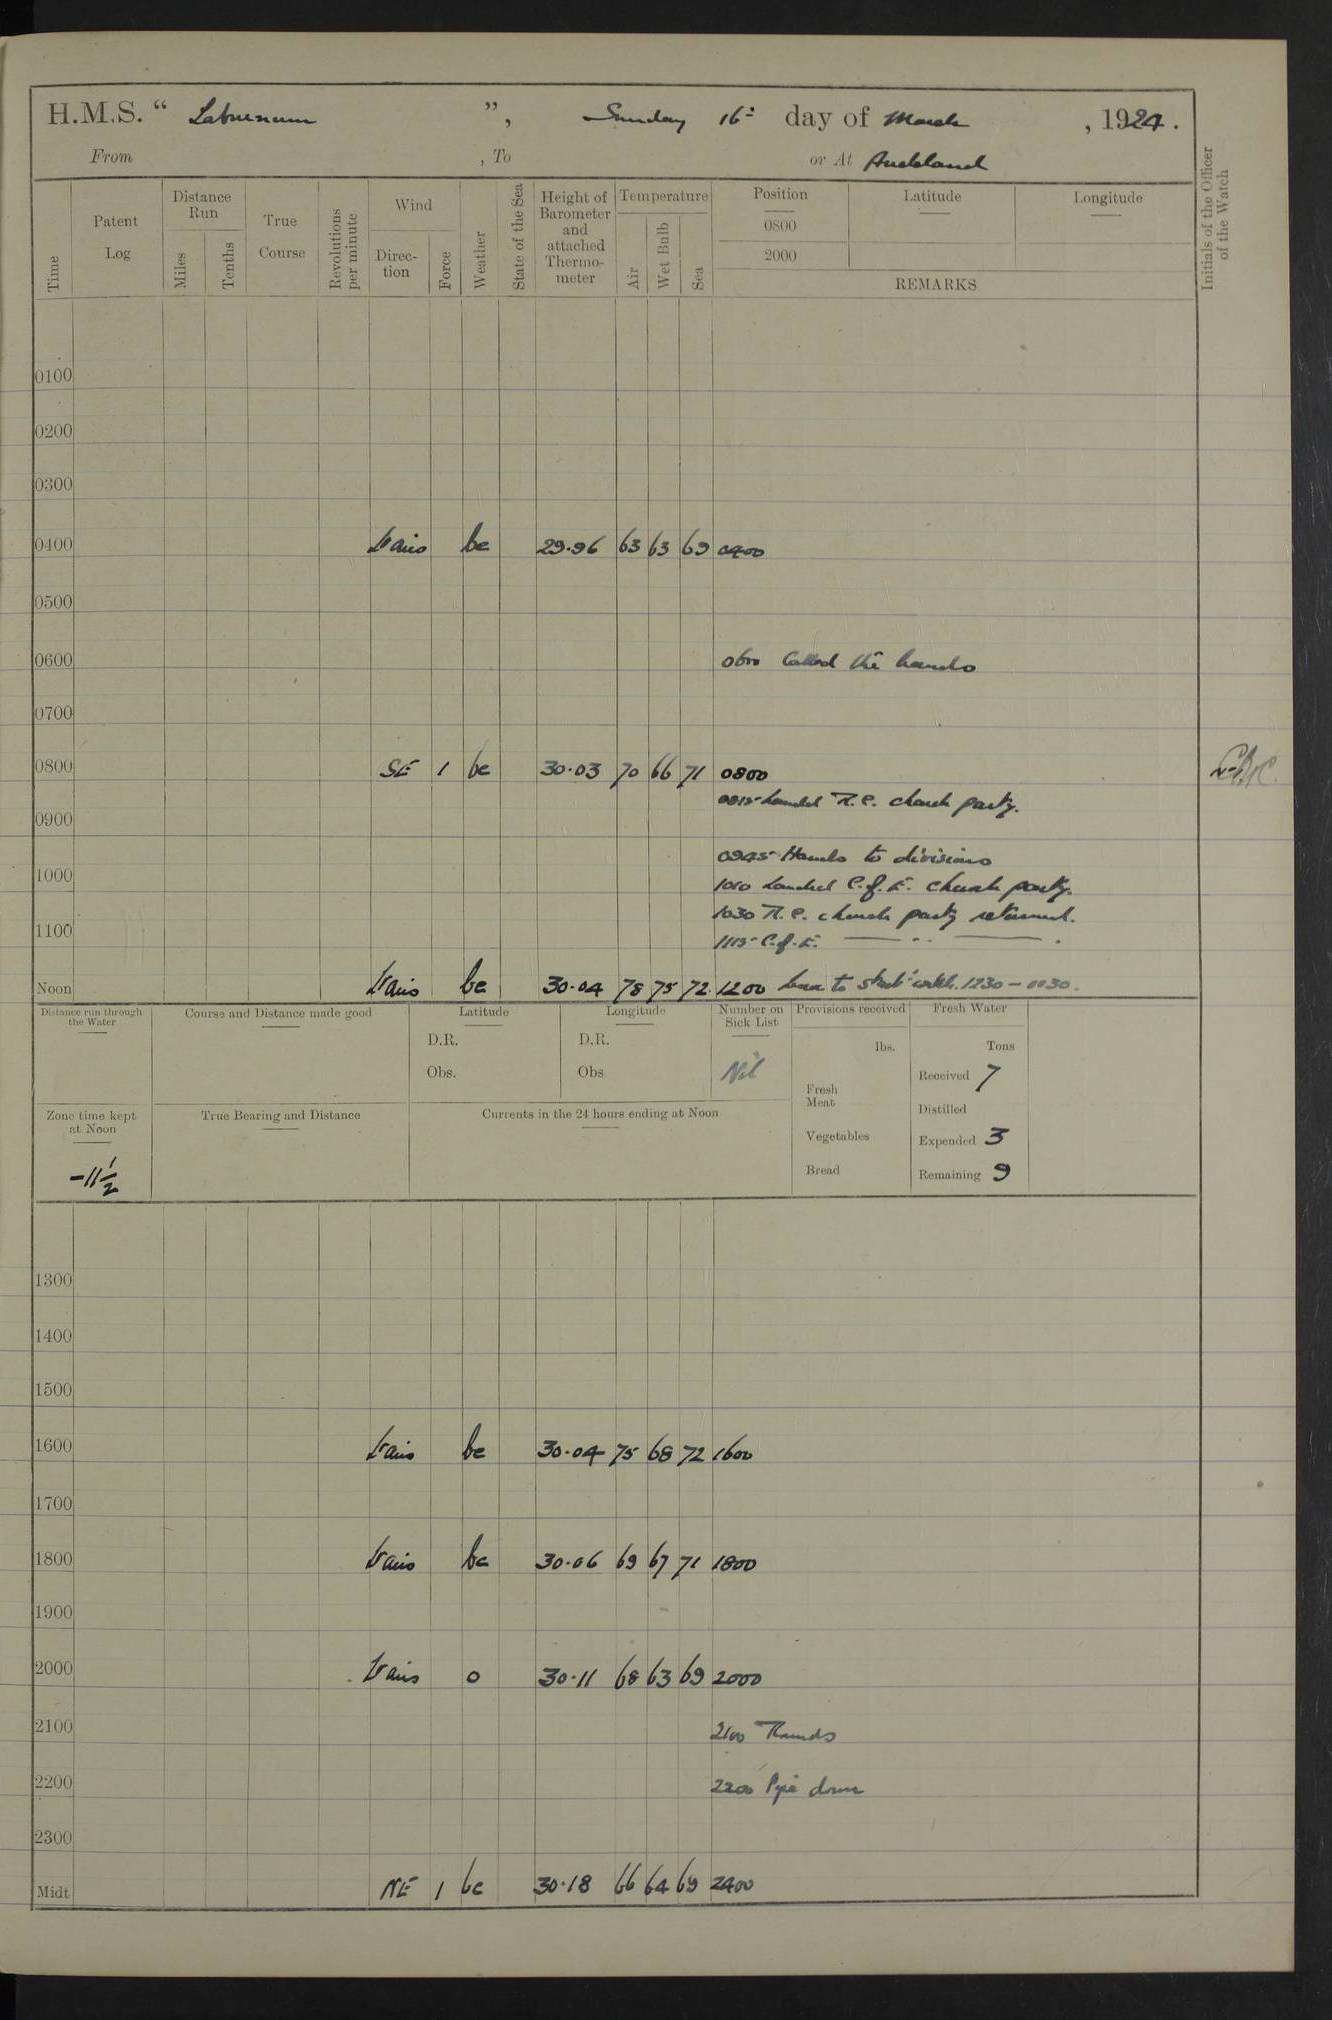 H.M.S. “ Laburnum ”, Sunday 16th day of March , 1924.
From , To or At Auckland
Time
Patent Log
Distance Run
Miles
Tenths
True Course
Revolutions per minute
Wind
Direction
Force
Weather
State of the Sea
Height of Barometer and attached Thermometer
Temperature
Air
Wet Bulb
Sea
Position
0800
2000
Latitude
Longitude
REMARKS
Initials of the Officer of the Watch
0100
0200
0300
0400 Vairs bc 29.96 63 63 69 0400
0500
0600 0600 Called the hands
0700
0800 SE 1 bc 30.03 70 66 71 0800
0815 Landed R.C. church party.
0900
0945 Hands to divisions
1000 1010 Landed C. of E. church party.
1030 R.C. church party returned.
1100 1115 C. of E. —— " ——.
Noon Vairs bc 30.04 78 75 72 1200 Leave to starb'd watch. 1230 – 0030.
Distance run through the Water
Course and Distance made good
Latitude
D.R.
Obs.
Longitude
D.R.
Obs
Number on Sick List
Nil
Provisions received
lbs.
Fresh Meat
Vegetables
Bread
Fresh Water
Tons
Received 7
Distilled
Expended 3
Remaining 9
Zone time kept at Noon
-11½
True Bearing and Distance
Currents in the 24 hours ending at Noon
1300
1400
1500
1600 Vairs bc 30.04 75 68 72 1600
1700
1800 Vairs bc 30.06 69 67 71 1800
1900
2000 Vairs o 30.11 68 63 69 2000
2100 2100 Rounds
2200 2200 Pipe down
2300
Midt NE 1 bc 30.18 66 64 69 2400